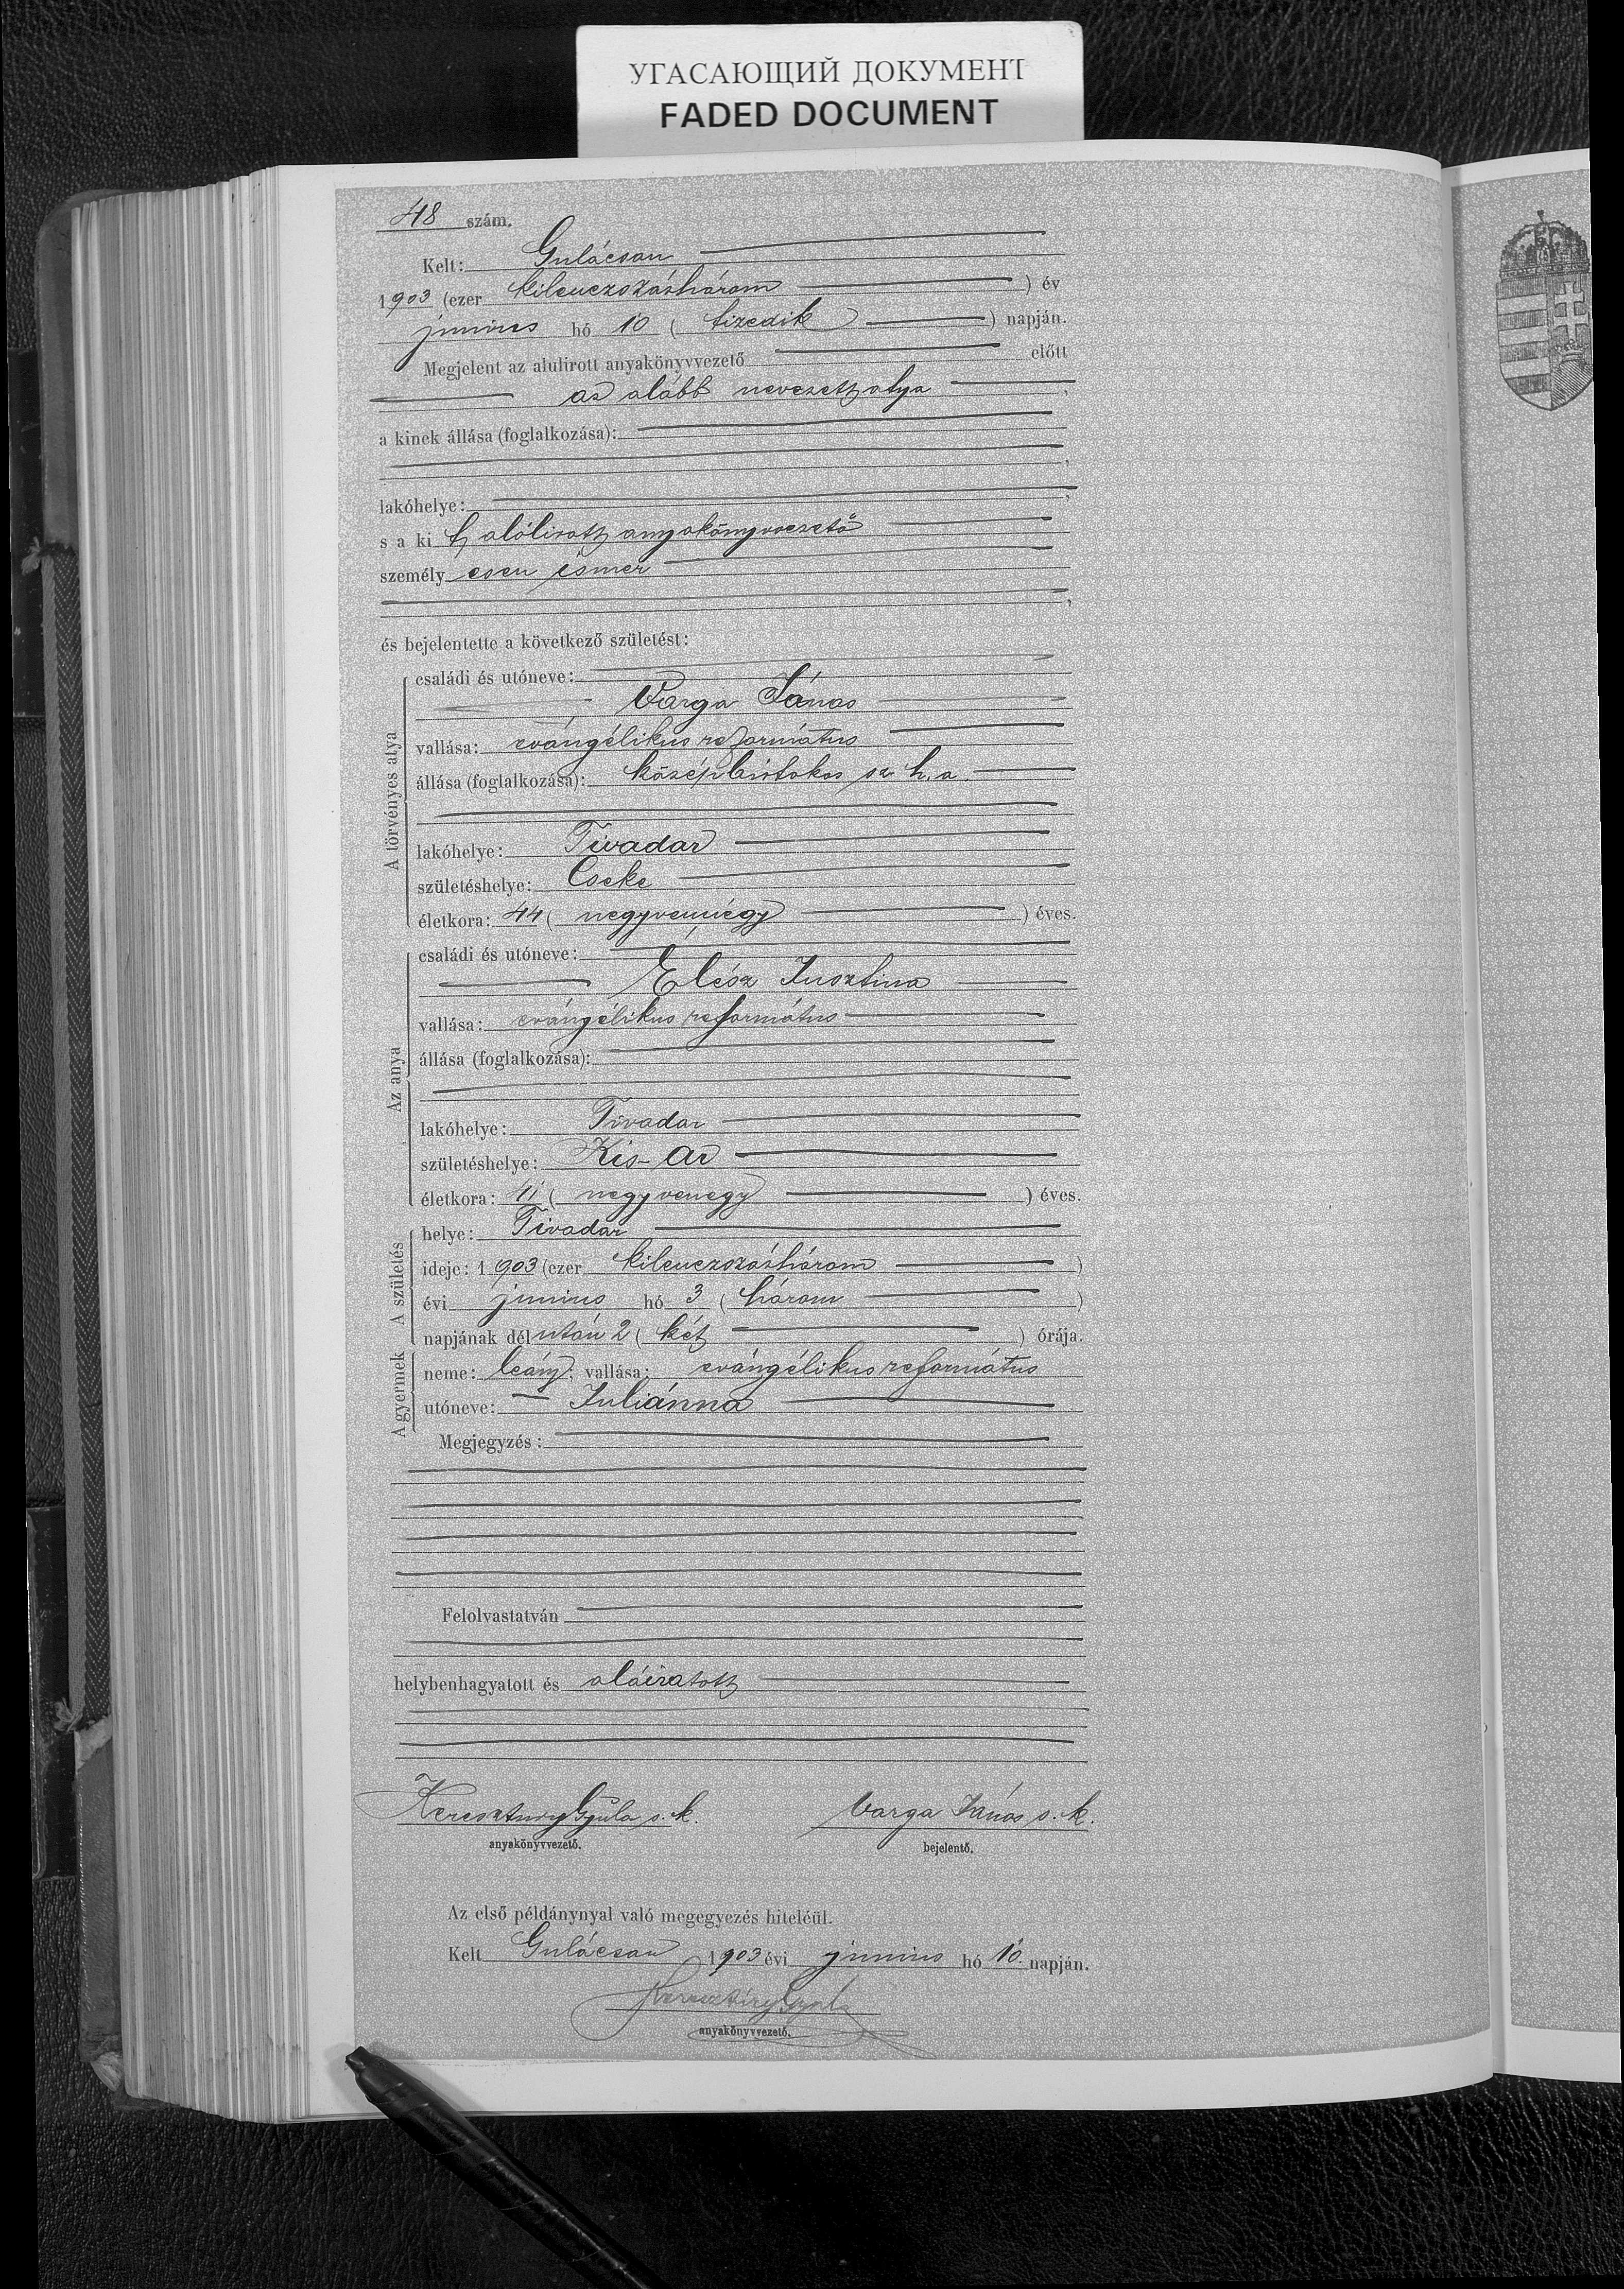 УГАСАЮЩИЙ ДОКУМЕНТ
FADED DOCUMENT
48 szám.
Kelt: Gulácson
1903 (ezer kilenczszázhárom ) év
junius hó 10 ( tizedik ) napján.
Megjelent az alulirott anyakönyvvezető előtt
az alább nevezett atya ,
a kinek állása (foglalkozása):
,
lakóhelye: ,
s a ki t alólirott anyakönyvvezető
személy esen ismer
,
és bejelentette a következő születést:
A törvényes atya
családi és utóneve:
Varga János
vallása: evángélikus református
állása (foglalkozása): középbirtokos sz. h. a.
lakóhelye: Tivadar
születéshelye: Cseke
életkora: 44 ( negyvennégy ) éves.
Az anya
családi és utóneve:
Elész Jusztina
vallása: evángélikus református
állása (foglalkozása):
lakóhelye: Tivadar
születéshelye: Kis-Ar
életkora: 41 ( negyvenegy ) éves.
A születés
helye: Tivadar
ideje: 1903 (ezer kilenczszázhárom )
évi junius hó 3 ( három )
napjának délután 2 ( két ) órája.
A gyermek
neme: leány; vallása: evángélikus református
utóneve: Juliánna
Megjegyzés:
Felolvastatván
helybenhagyatott és aláiratott
Keresztury Gyula s. k. Varga János s. k.
anyakönyvvezető. bejelentő.
Az első példánynyal való megegyezés hiteléül.
Kelt Gulácson 1903 évi junius hó 10. napján.
Keresztury Gyula
anyakönyvvezető.